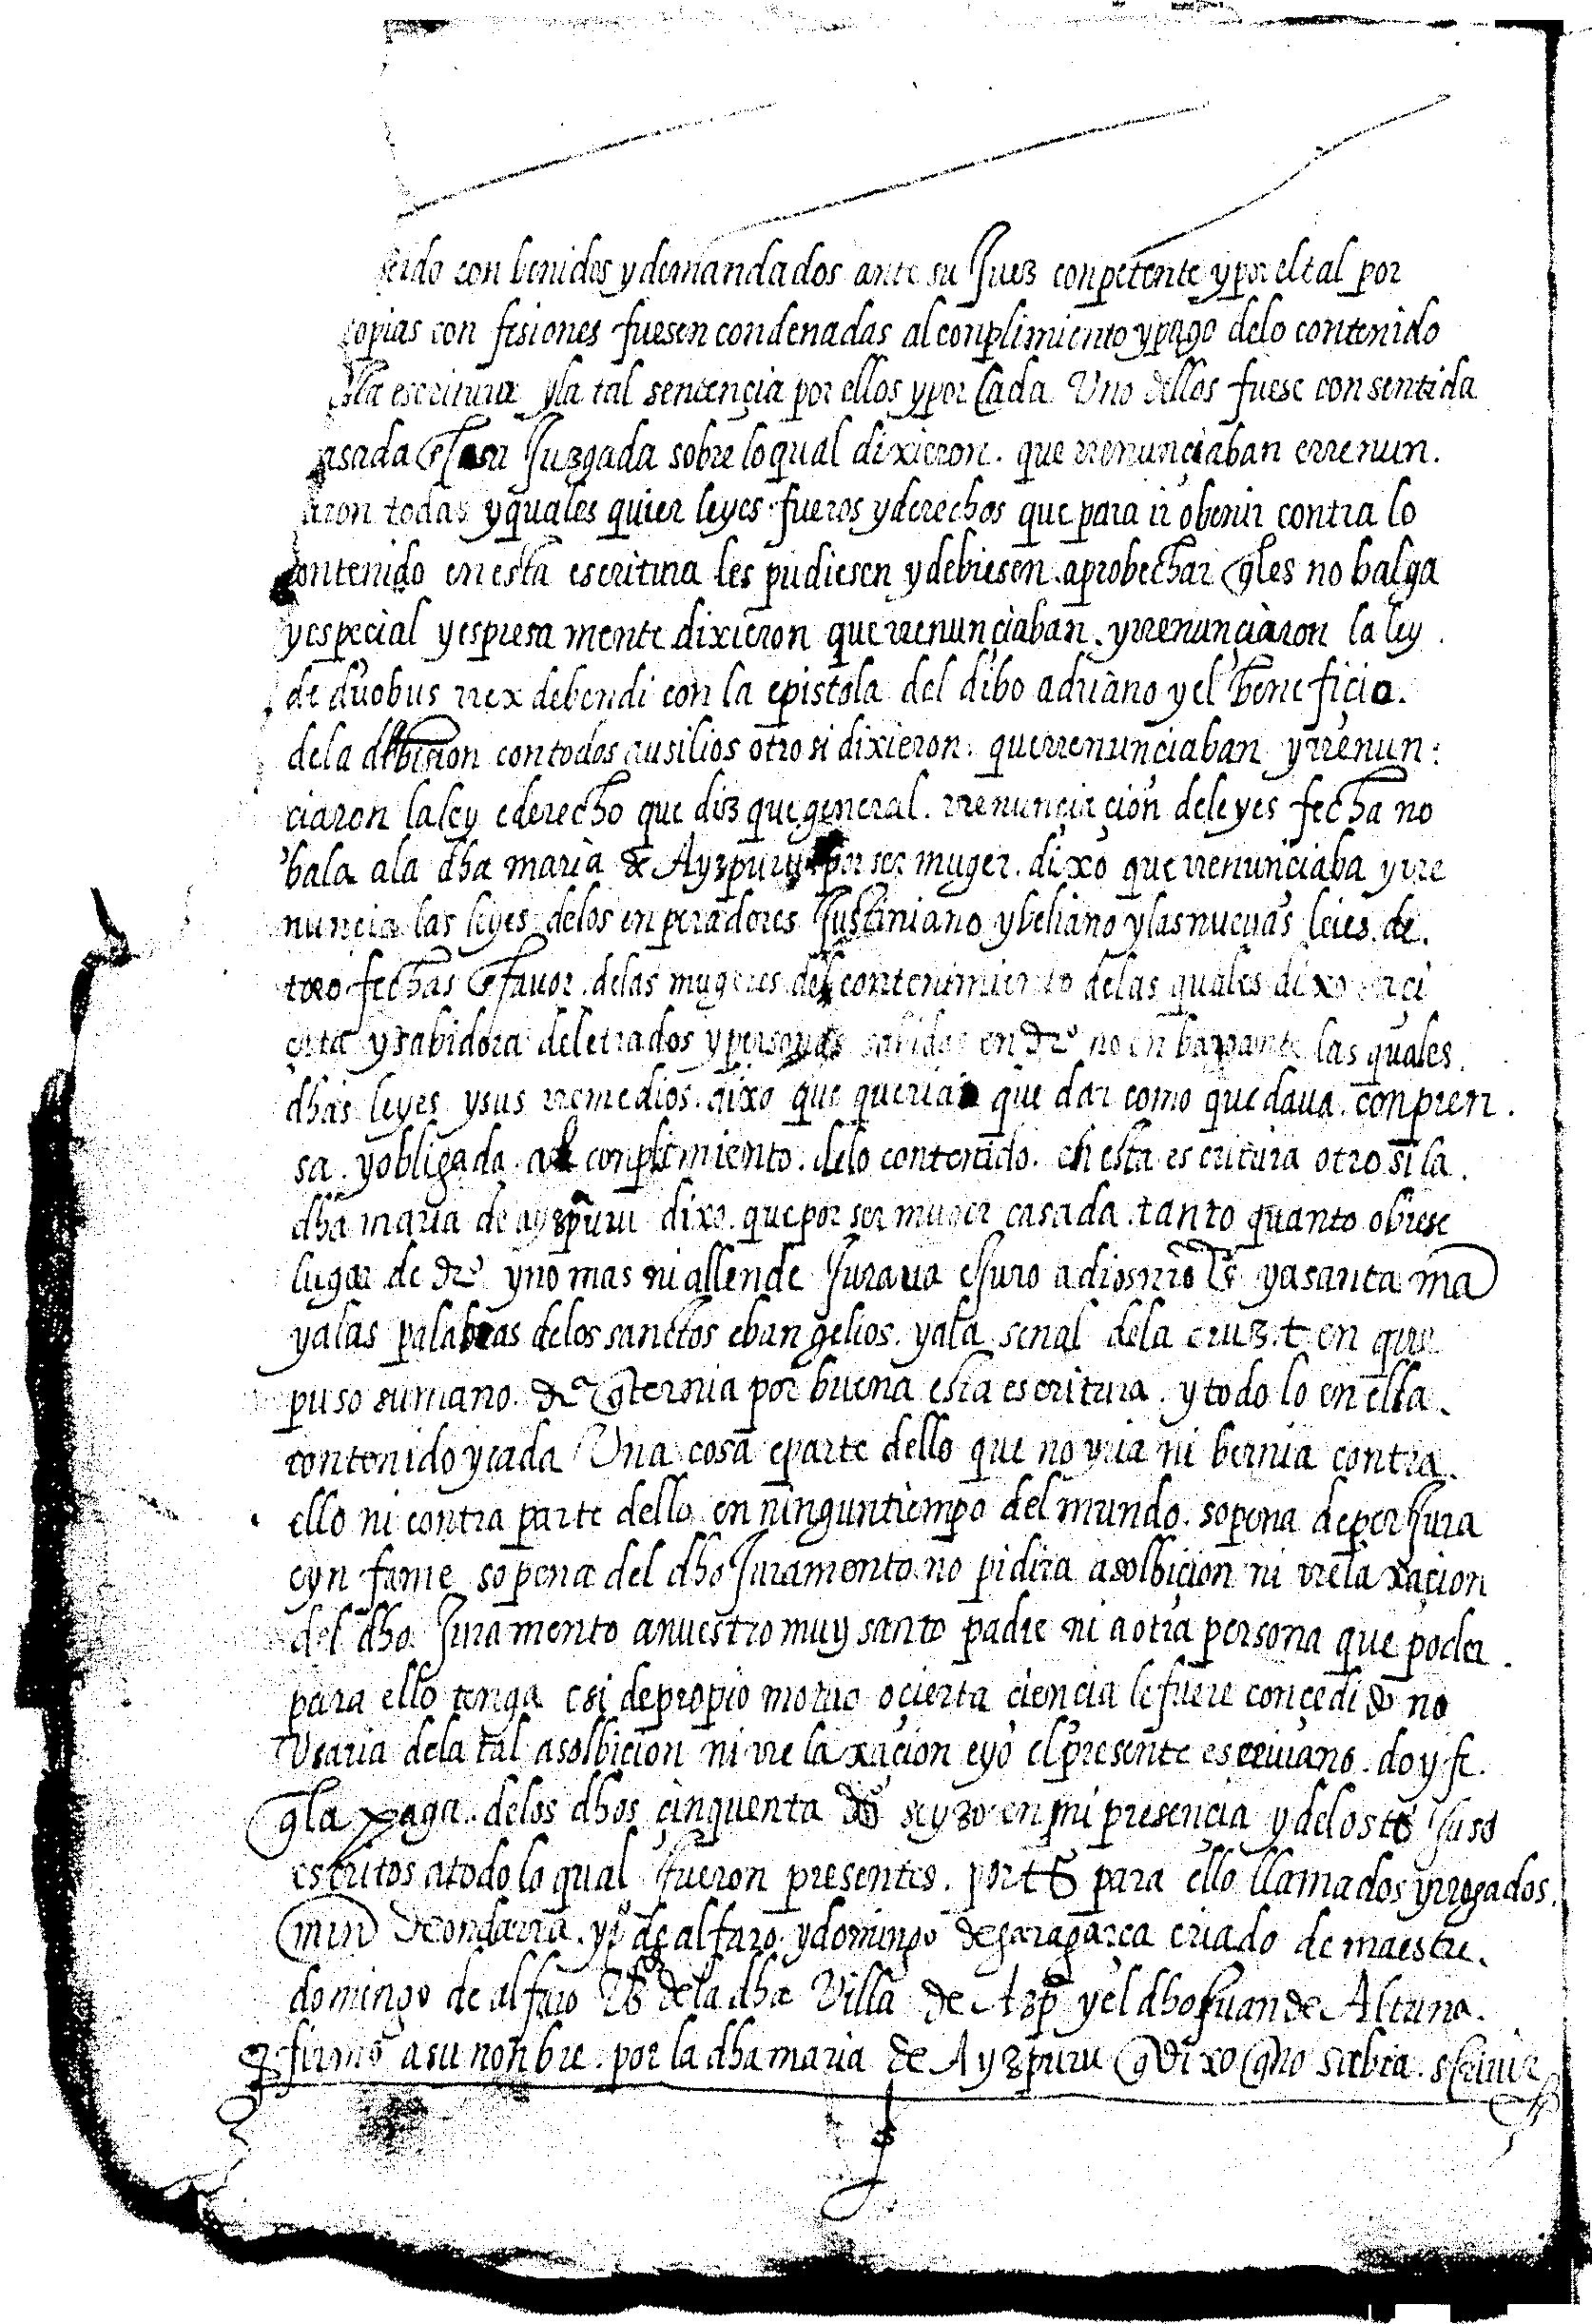 seido con benidos y demandados ante su Juez conpetente y por el tal por
copias con fisiones fuesen condenadas al conplimiento y pago delo contenido
esta escritura y la tal sentençia por ellos y por Cada Uno dellos fuese consentida
asada Juzgada sobre lo qual dixieron. que rrenunçiaban errenun.
aron todas y quales quier leyes fueros y derechos que para ir o benir contra lo
contenido en esta escritura les pudiesen y debiesen aprobechar q les no balga
y especial y espresa mente dixieron que rrenunçiaban. y rrenunçiaron la ley.
de duobus rrex debendi con la epistola del dibo adriano y el beneficio.
dela debision con todos ausilios otro si dixieron. que rrenunciaban y rrenun:
ciaron la ley e derecho que diz que general. rrenunçiaçion de leyes fecha no
bala a la dha maria de Ayzpuru por ser muger. dixo que rrenunciaba y rre
nuncia las leyes delos enperadores Justiniano y beliano y las nueuas leies. de.
toro fechas e favor. delas mugeres del contenimiento delas quales dixo era çi
erta y sabidora de letrados y personas sabidas en dro no enbargante las quales.
dhas leyes y sus rremedios. dixo que queria que dar como quedaua. conpren.
sa. y obligada. al conplimiento. delo contenido. en esta escritura otro si la.
dha maria de ayzpuru dixo. que por ser muger casada. tanto quanto obiese
lugar de dro y no mas ni allende Juraua e Juro a dios nro sr y a santa ma
y a las palabras delos sanctos ebangelios. y a la senal dela cruz. t en que
puso su mano. dr q ternia por buena esta escritura. y todo lo en ella.
contenido y cada Una cosa e parte dello que no yria ni bernia contra.
ello ni contra parte dello en ningun tiempo del mundo. so pena de perJura
e yn fame so pena del dho Juramento no pidira asolbicion ni rrelaxaçion
del dho. Juramento a nuestro muy santo padre ni a otra persona que poder.
para ello tenga e si de propio motuo o çierta ciencia le fuere conçedido no
Usaria dela tal asolbicion ni rre laxaçion e yo el presente escriuano. doy fe.
q la paga. delos dhos çinquenta dos se yzo en mi presencia y delos ts Juso
escritos a todo lo qual fueron presentes. por ts para ello llamados y rrogados.
min de ondarra. y po de alfaro. y domingo de garagarça criado de maestre.
domingo de alfaro vs dela dha Villa de Azpa y el dho Juan de Altuna.
firmo a su nonbre. por la dha maria de Ayzpuru q dixo q no sabia. scriuir